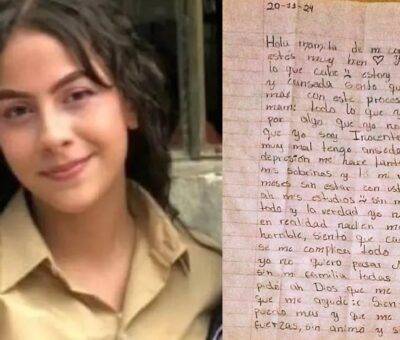 20-11-24
Hola mamita de mi co
estés muy bien ♡
lo que cabe y estoy
y cansada siento qu
mas con este proces
mami todo lo que
por algo que yo no
que yo soy Inocente
muy mal tengo ansied
depresión me hace
mis sobrinos y mi
meses sin estar con ust
mis estudios sin m
todo y la verdad yo n
en realidad nadie me
horrible, siento que ca
se me complica todo
yo no quiero pasar
sin mi familia todas
pido ah Dios que me
que me ayude Sien
puedo mas y que me
fuerzas, sin animo y s